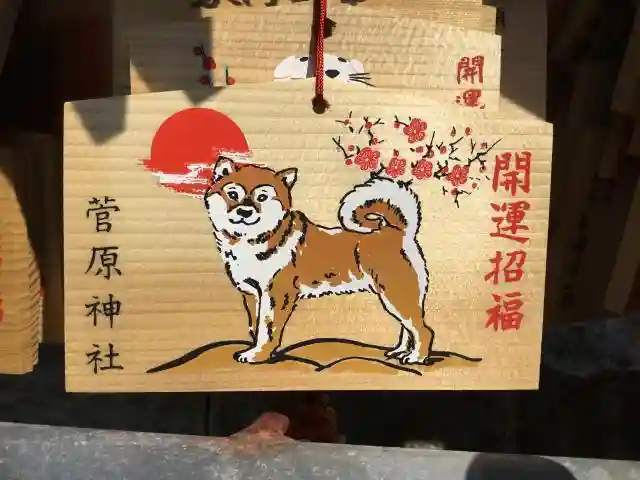 開運招福
菅原神社
開運